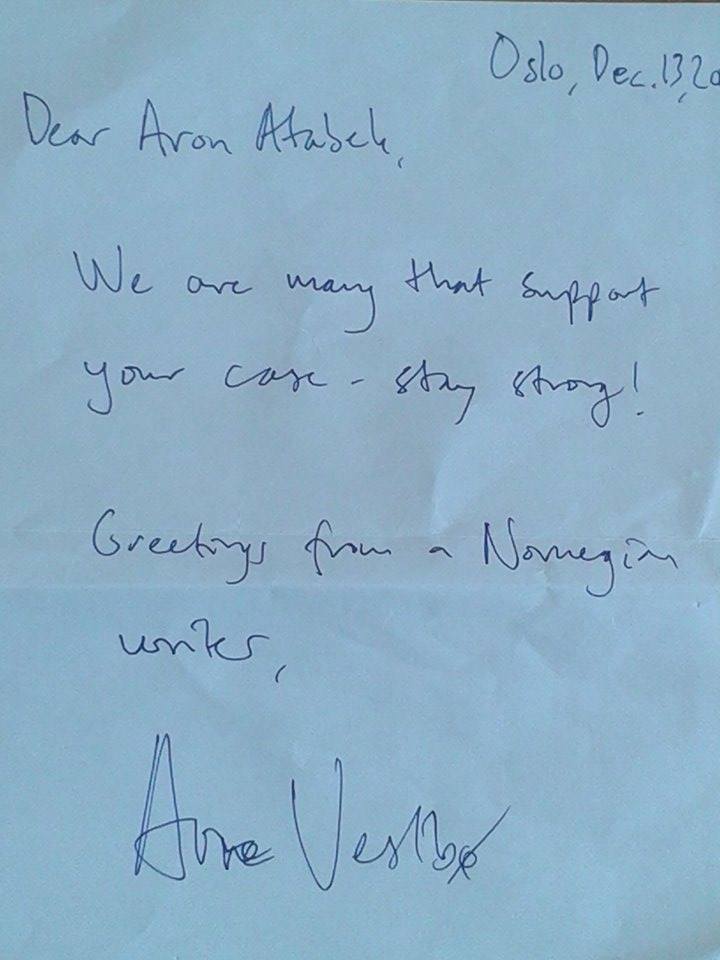 Oslo, Dec. 13, 20
Dear Aron Atabek,
We are many that support
your case - stay strong!
Greetings from a Norwegian
writer,
Arne Vestbø